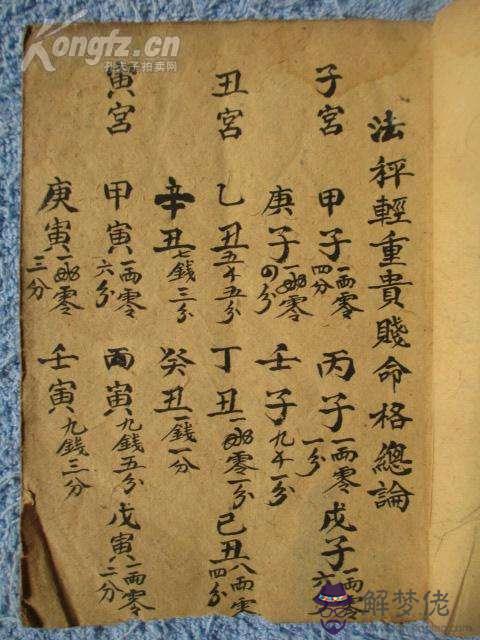 Kongfz.cn
孔夫子拍卖网
法秤輕重貴賤命格總論
子宮 甲子一兩零四分 丙子一兩零一分 戊子一兩零六
庚子一兩零四分 壬子九千一分
丑宮 乙丑五千五分 丁丑一兩零一分 己丑八兩零四分
辛丑七錢三分 癸丑一錢一分
寅宮 甲寅一兩零六分 丙寅九錢五分 戊寅一兩零二分
庚寅一兩零三分 壬寅九錢三分
解梦佬